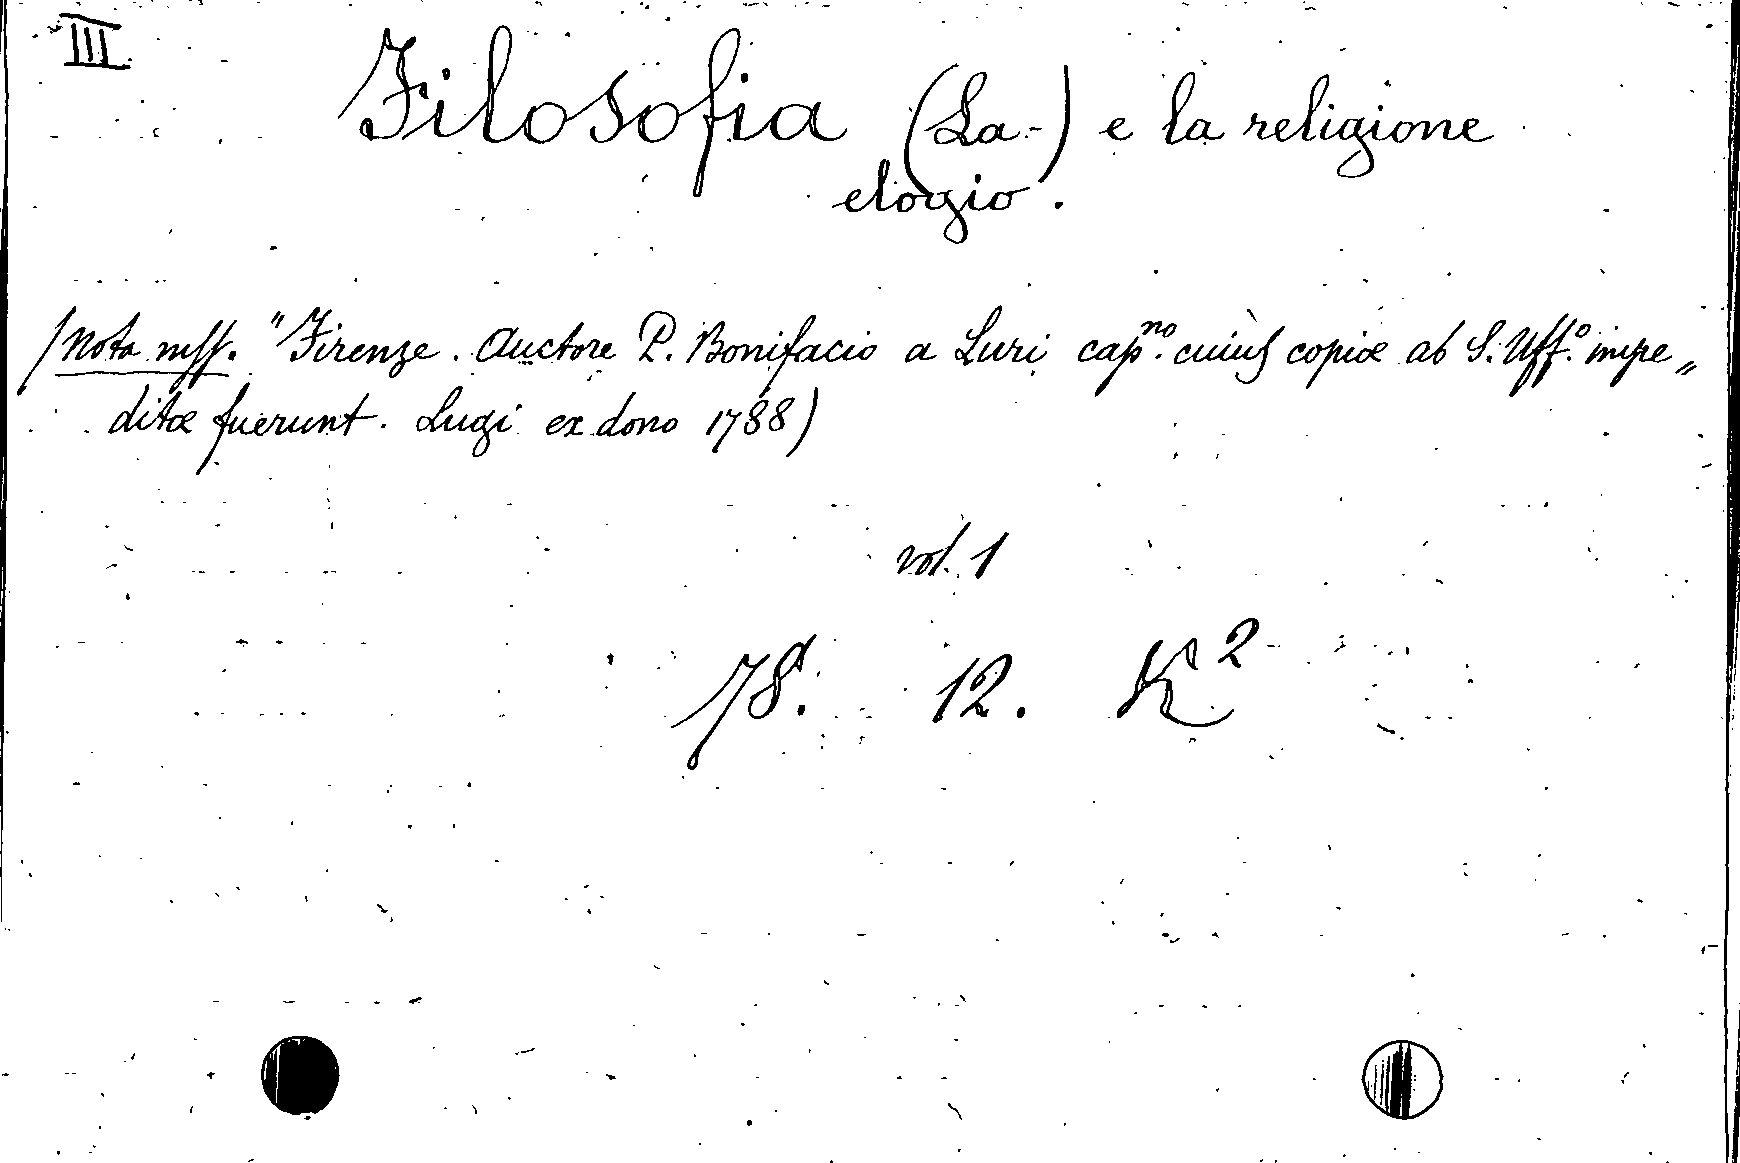 III
Filosofia (La-) e la religione
elogio.
(Nota mss. "Firenze. Auctore P. Bonifacio a Luri cap.no cuius copiæ ab S. Uff.o impe„
ditæ fuerunt. Lugi ex dono 1788)
vol. 1
78. 12. K2